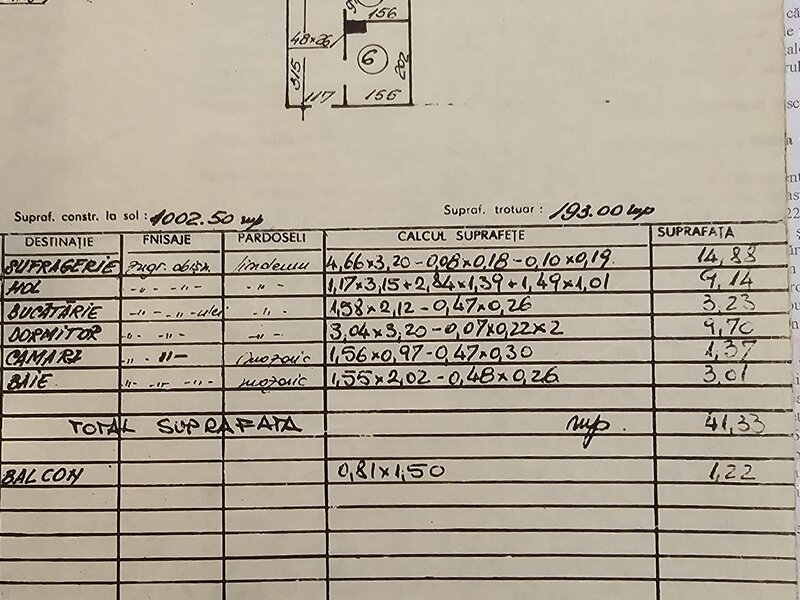 156
48×26
6
315
202
117
156
Supraf. constr. la sol : 1002.50 mp Supraf. trotuar : 193.00 mp
DESTINAȚIE FNISAJE PARDOSELI CALCUL SUPRAFEȚE SUPRAFAȚA
SUFRAGERIE zugr. obișn. 4,66×3,20-0,08×0,18-0,10×0,19 14,88
HOL -"- -"- -"- -"- 1,17×3,15+2,84×1,39+1,49×1,01 9,14
BUCĂTĂRIE -"- -"- -"- ulei -"- 1,98×2,12-0,47×0,26 3,23
DORMITOR -"- -"- -"- 3,04×3,20-0,07×0,22×2 9,70
CAMARĂ -"- -"- mozaic 1,56×0,97-0,47×0,30 1,37
BAIE -"- -"- -"- mozaic 1,55×2,02-0,48×0,26 3,01
TOTAL SUPRAFATA mp. 41,33
BALCON 0,81×1,50 1,22